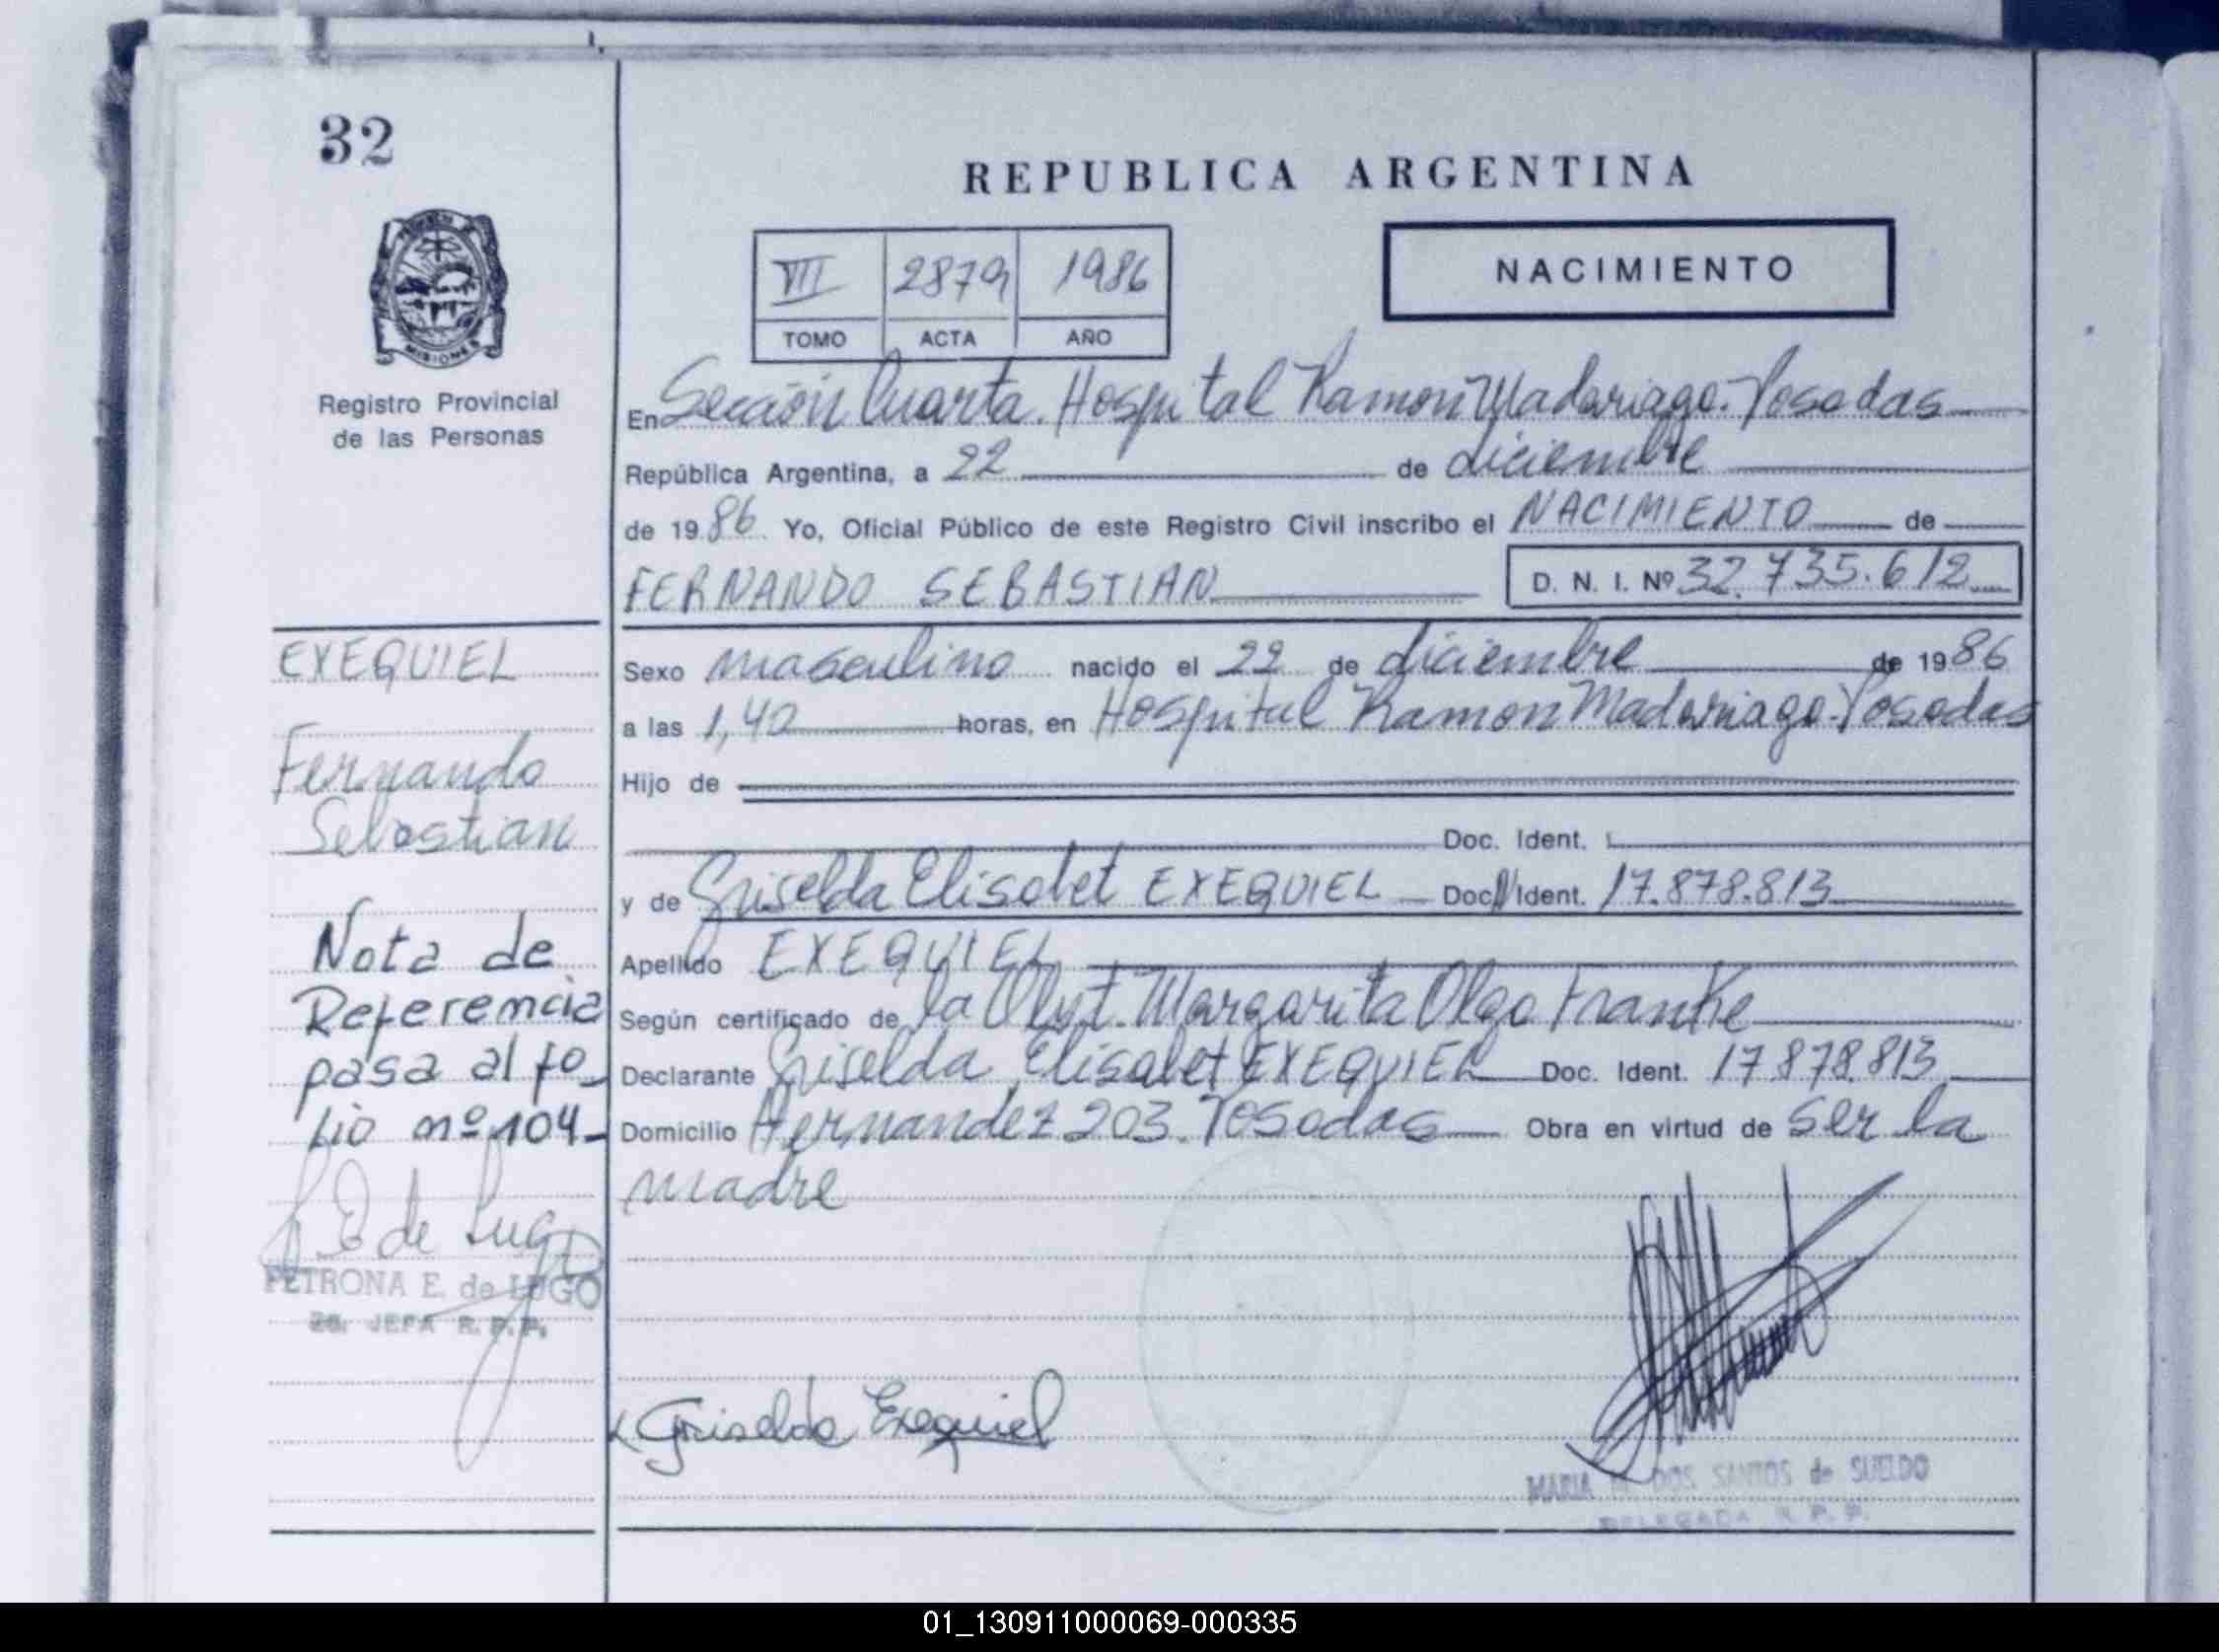 32
REPUBLICA ARGENTINA
VII 2879 1986
TOMO ACTA AÑO
NACIMIENTO
MISIONES
Registro Provincial
de las Personas
En Sección Cuarta. Hospital Ramon Madariaga. Posadas
República Argentina, a 22 de diciembre
de 1986 Yo, Oficial Público de este Registro Civil inscribo el NACIMIENTO de
FERNANDO SEBASTIAN D. N. I. Nº 32.735.612
Sexo masculino nacido el 22 de diciembre de 1986
a las 1,40 horas, en Hospital Ramon Madariaga. Posadas
Hijo de
Doc. Ident.
y de Griselda Elisabet EXEQUIEL Doc. Ident. 17.878.813
Apellido EXEQUIEL
Según certificado de la Obst. Margarita Olga Franke
Declarante Griselda Elisabet EXEQUIEL Doc. Ident. 17.878.813
Domicilio Hernandez 203. Posadas Obra en virtud de ser la
madre
EXEQUIEL
Fernando
Sebastian
Nota de
Referencia
pasa al fo_
lio nº 104_
P E de Lugo
PETRONA E. de LUGO
JEFA R. P. P.
Griselda Exequiel
MARIA DOS SANTOS de SUELDO
DELEGADA R. P. P.
01_130911000069-000335